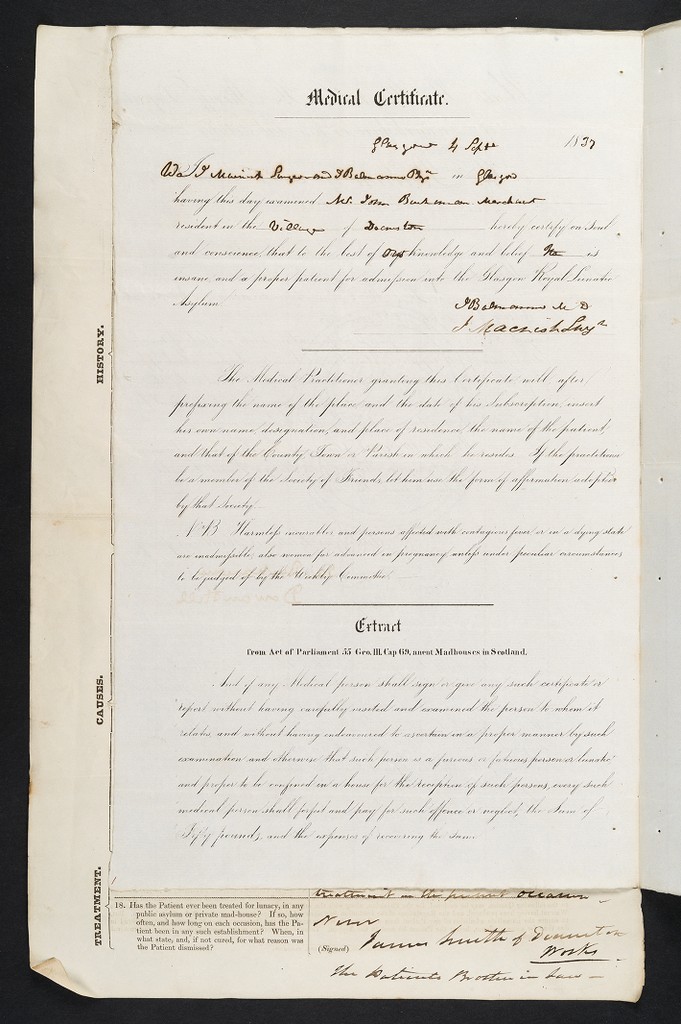 Medical Certificate.
Glasgow 4 Septr 1837
We J Macnish Surgeon and J Balmanno Phyn in Glasgow
having this day examined Mr. John Buchanan Merchant
resident in the Village of Deanston hereby certify on Soul
and conscience, that to the best of our knowledge and belief He is
insane, and a proper patient for admission into the Glasgow Royal Lunatic
Asylum.
J Balmanno M D
J Macnish Surgn
The Medical Practitioner granting this Certificate will, after
prefixing the name of the place and the date of his Subscription, insert
his own name, designation, and place of residence, the name of the patient,
and that of the County, Town or Parish in which he resides. If the practitioner
be a member of the Society of Friends, let him use the form of affirmation adopted
by that Society.
N.B. Harmless incurables and persons affected with contagious fever or in a dying state
are inadmissible; also women far advanced in pregnancy, unless under peculiar circumstances,
to be judged of by the Weekly Committee.
Extract
from Act of Parliament 55 Geo. III. Cap 69, anent Madhouses in Scotland.
And if any Medical person shall sign or give any such certificate or
report without having carefully visited and examined the person to whom it
relates, and without having endeavoured to ascertain in a proper manner by such
examination and otherwise that such person is a furious or fatuous person or lunatic
and proper to be confined in a house for the reception of such persons, every such
medical person shall forfeit and pay for such offence or neglect, the Sum of
Fifty pounds, and the expenses of recovering the same.
HISTORY.
CAUSES.
TREATMENT.
treatment on the present occasion
18. Has the Patient ever been treated for lunacy, in any
public asylum or private mad-house? If so, how
often, and how long on each occasion, has the Pa-
tient been in any such establishment? When, in
what state, and, if not cured, for what reason was
the Patient dismissed?
Never
(Signed) James Smith of Deanston
Works
The Patients Brother in Law